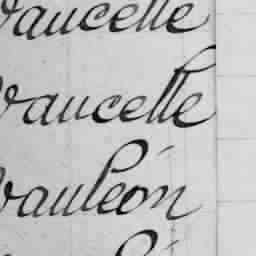 Vaucelle
Vaucelle
Vauléon